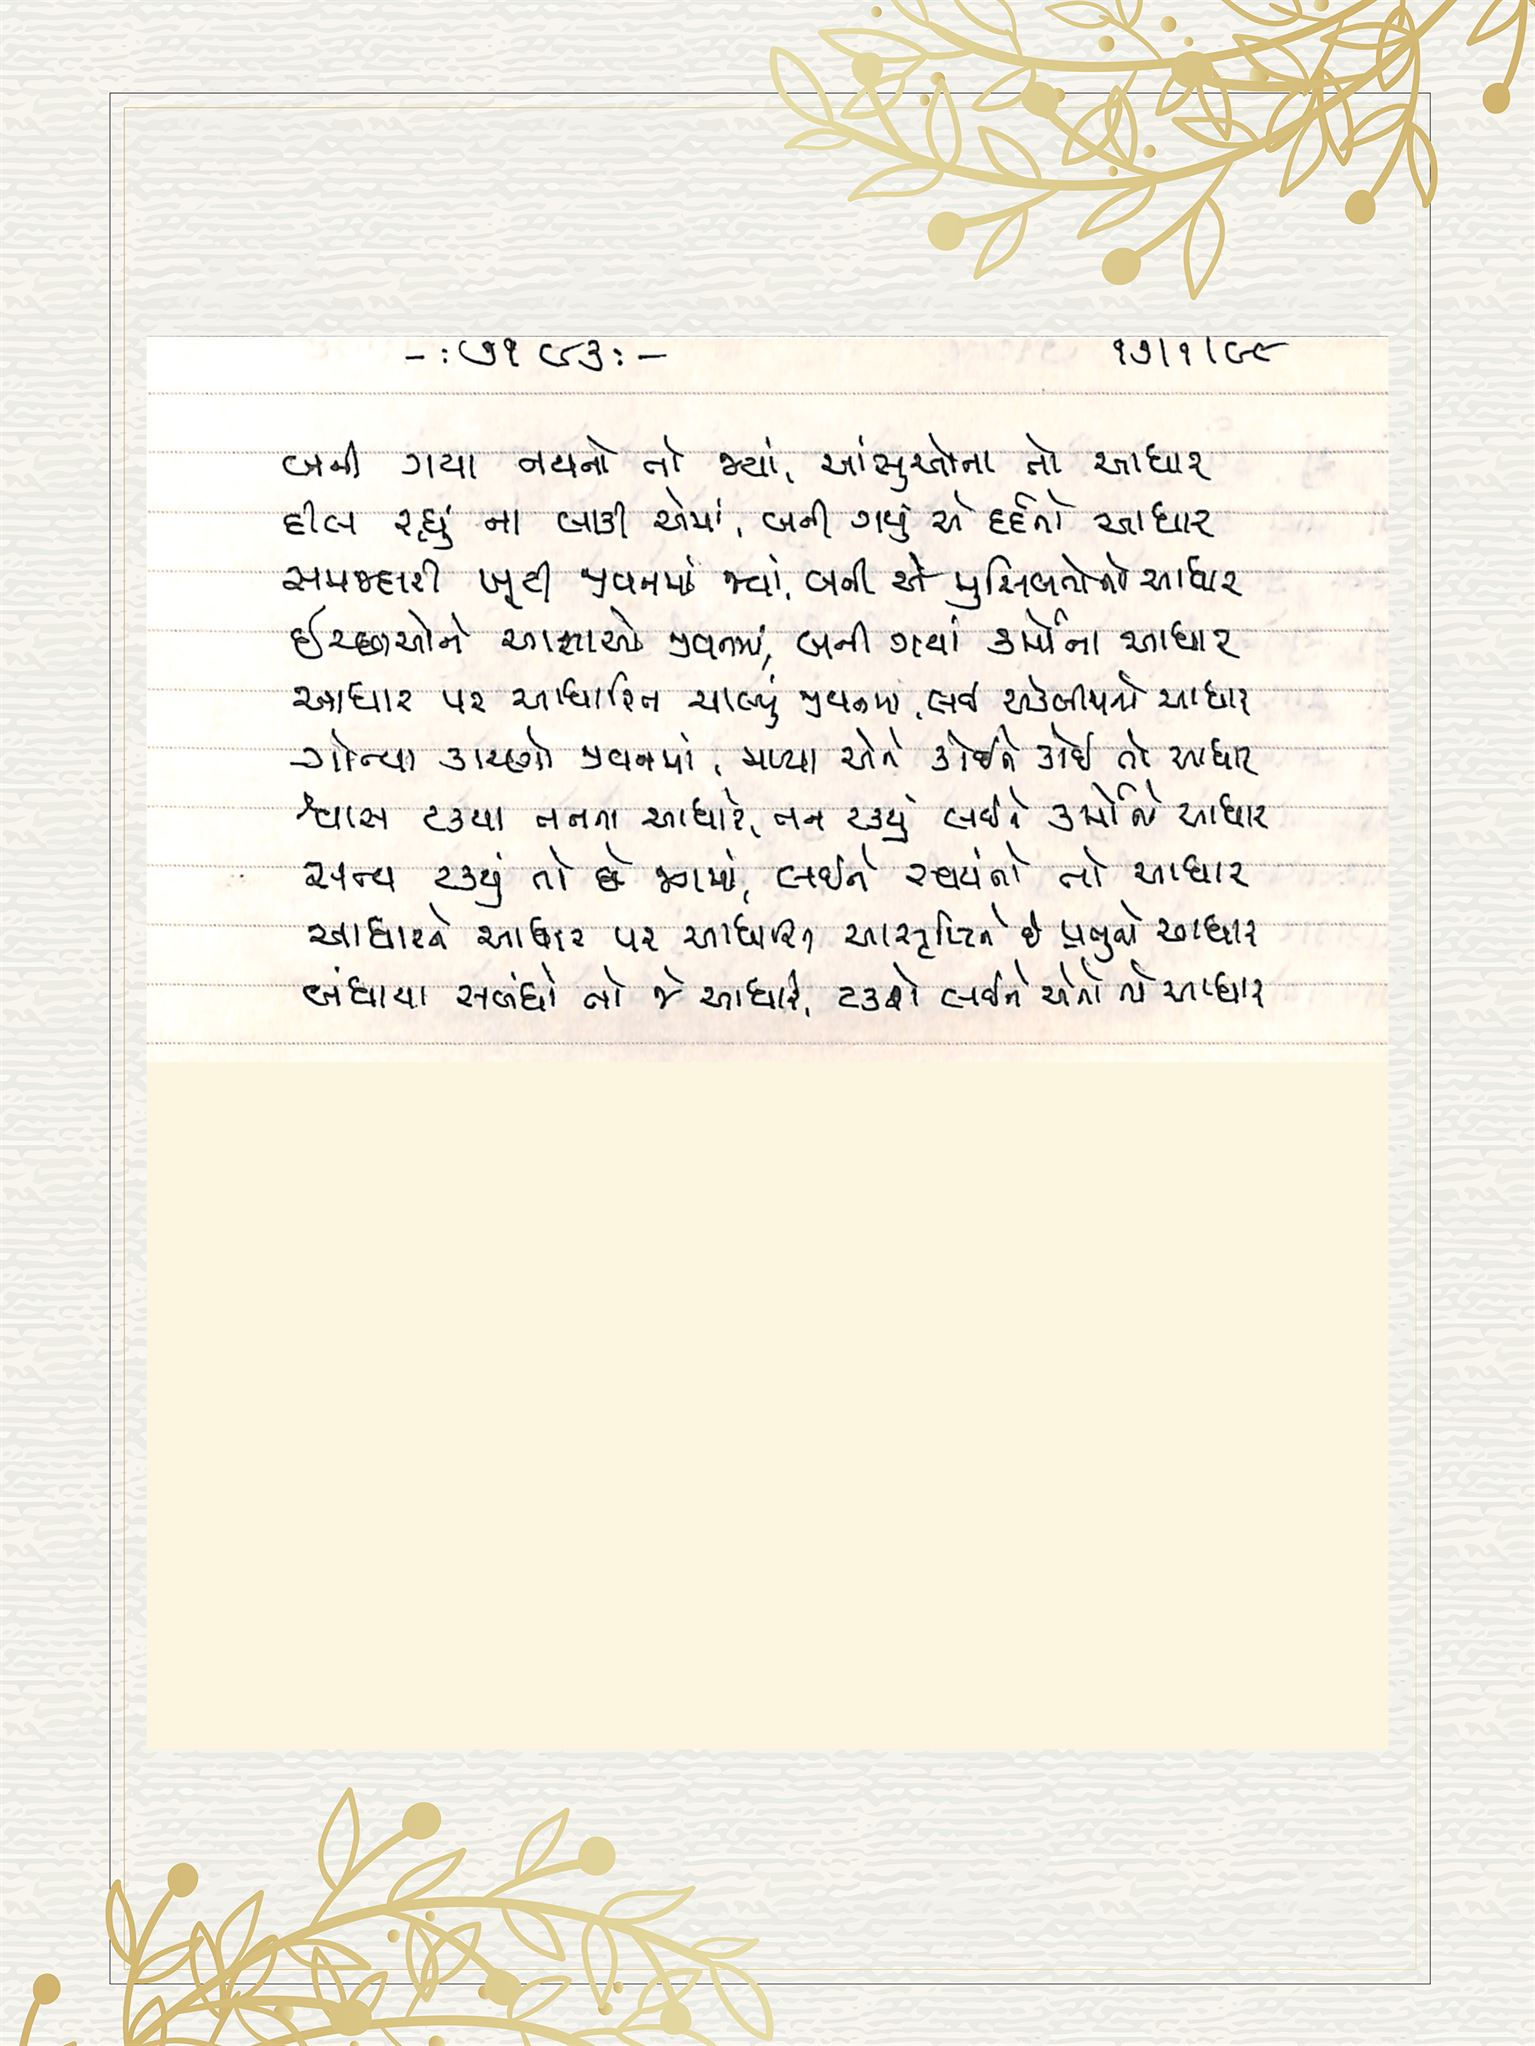 -: ૭૧૯૩ :- ૧૭/૧/૯૮
બની ગયા નયનો તો જ્યાં, આંસુઓના તો આધાર
દીલ રહ્યું ના બાકી એમાં, બની ગયું એ દર્દનો આધાર
સમજદારી ખૂટી જીવનમાં જ્યાં, બની એ મુસિબતોનો આધાર
ઈચ્છાઓને આશાઓ જીવનમાં, બની ગયાં કર્મોના આધાર
આધાર પર આધારિત ચાલ્યું જીવનમાં, લઈ અકેબીજાનો આધાર
ગોત્યા કારણો જીવનમાં, મળ્યા એને કોઈને કોઈ તો આધાર
શ્વાસ ટક્યા તનના આધારે, તન ટક્યું લઈને કર્મોનો આધાર
સત્ય ટક્યું તો છે જગમાં, લઈને સ્વયંનો તો આધાર
આધારને આધાર પર આધારિત આ સૃષ્ટિને છે પ્રભુનો આધાર
બંધાયા સબંધો તો જે આધારે, ટકશે લઈને એનો જ આધાર